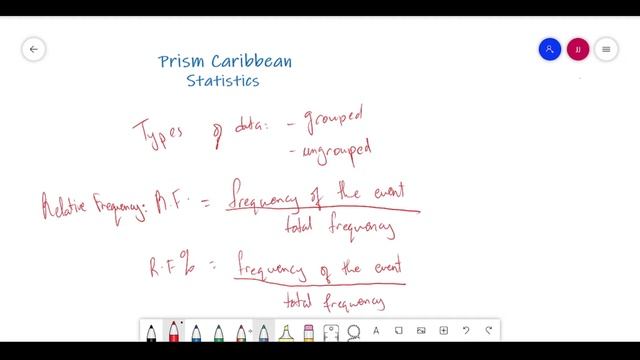 JJ
Prism Caribbean
Statistics
Types of data: - grouped
- ungrouped
Relative Frequency: R.F. = frequency of the event
total frequency
R.F% = frequency of the event
total frequency
A